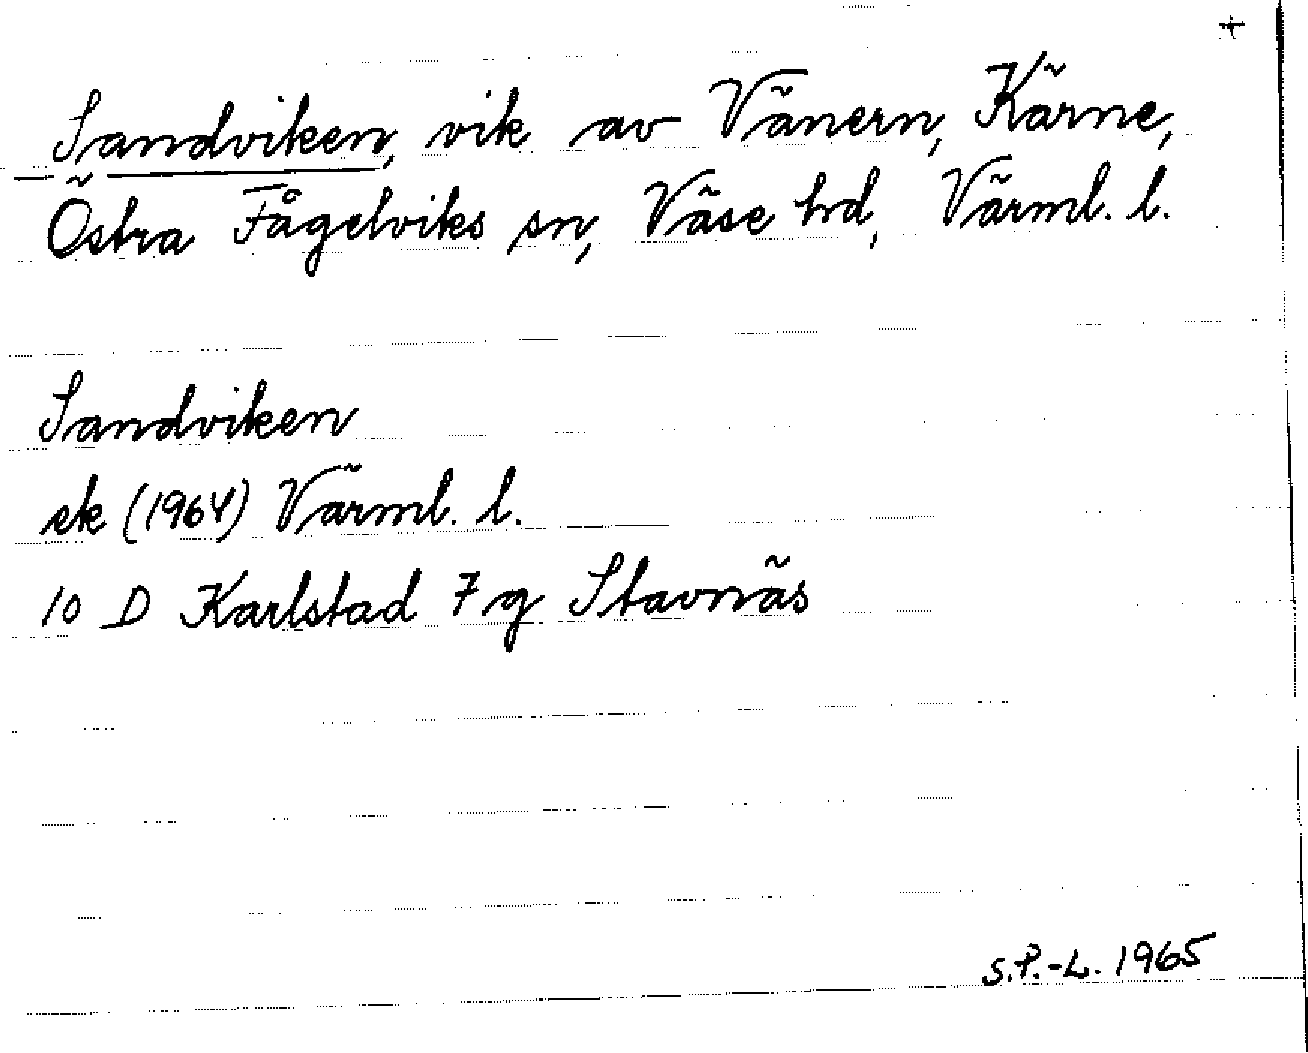 +
Sandviken, vik av Vänern, Kärne,
Östra Fågelviks sn, Väse hd, Värml. l.
Sandviken
ek (1964) Värml. l.
10 D Karlstad 7 g Stavnäs
S.P.-L. 1965